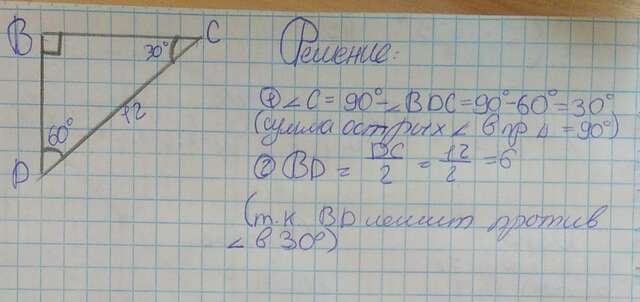 B
C
30°
12
60°
D
Решение:
① ∠C = 90° - ∠BDC = 90° - 60° = 30°
(сумма острых ∠ в пр Δ = 90°)
② BD = DC/2 = 12/2 = 6
(т.к BD лежит против
∠ в 30°)